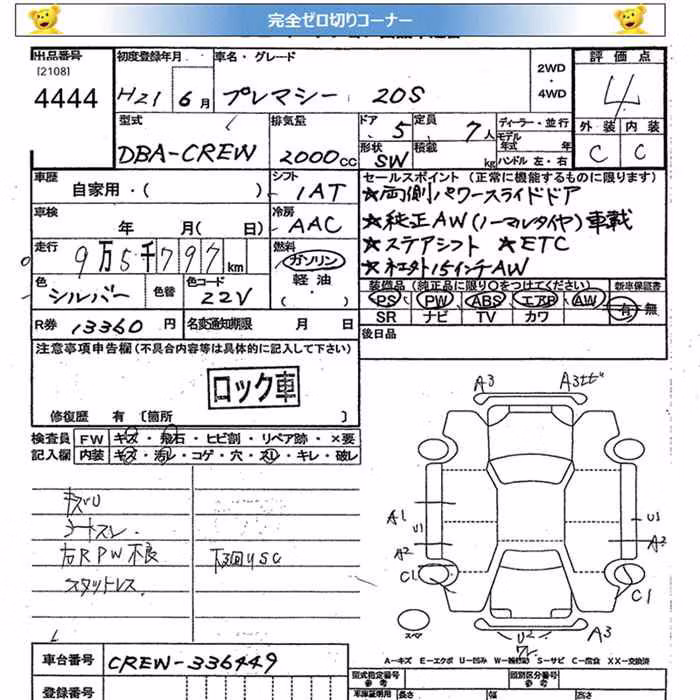 完全ゼロ切りコーナー
出品番号 初度登録年月 車名・グレード 評価点
[2108] 2WD
4444 H21 6月 プレマシー 20S ・ 4WD 4
型式 排気量 ドア 5 定員 7人 ディーラー・並行 外装 内装
モデル年式 年
DBA-CREW 2000cc 形状 SW 積載 kg ハンドル 左・右 C C
車歴 自家用・( ) シフト 1AT セールスポイント (正常に機能するものに限ります)
★両側パワースライドドア
車検 年 月( 日) 冷房 AAC ★純正AW(ノーマルタイヤ)車載
走行 9万5千797km 燃料 ガソリン ★ステアシフト ★ETC
軽油 ・( ) ★ネエクト15インチAW
色 シルバー 色替 色コード 22V 装備品(純正品に限り○をつけてください) 新車保証書
PS PW ABS エアB AW 有・無
SR ナビ TV カワ
R券 13360円 名変通知期限 月 日 後日品
注意事項申告欄(不具合内容等は具体的に記入して下さい)
ロック車
修復歴 有 〔箇所 〕
検査員 FW キズ・飛石・ヒビ割・リペア跡・×要
記入欄 内装 キズ・汚レ・コゲ・穴・スレ・キレ・破レ
キズU
シートスレ
右RPW不良
下回りSC
スタットレス
A3 A3
A1 U1 U1
A2 A2
C1 C1
スペア U2 A3
A-キズ E-エクボ U-凹み S-サビ C-腐食 XX-交換済
車台番号 CREW-336449
型式指定番号 参考 類別区分番号 参考
登録番号 長さ 幅 高さ